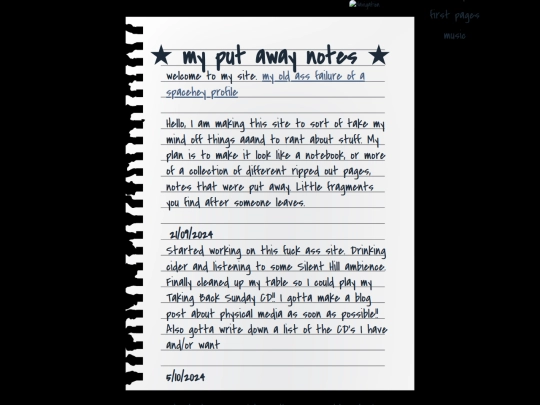 first pages
music
★ my put away notes ★
welcome to my site. my old ass failure of a
spacehey profile
Hello, I am making this site to sort of take my
mind off things aaand to rant about stuff. My
plan is to make it look like a notebook, or more
of a collection of different ripped out pages,
notes that were put away. Little fragments
you find after someone leaves.
21/09/2024
Started working on this fuck ass site. Drinking
cider and listening to some Silent Hill ambience.
Finally cleaned up my table so I could play my
Taking Back Sunday CD!! I gotta make a blog
post about physical media as soon as possible!!
Also gotta write down a list of the CD's I have
and/or want
5/10/2024